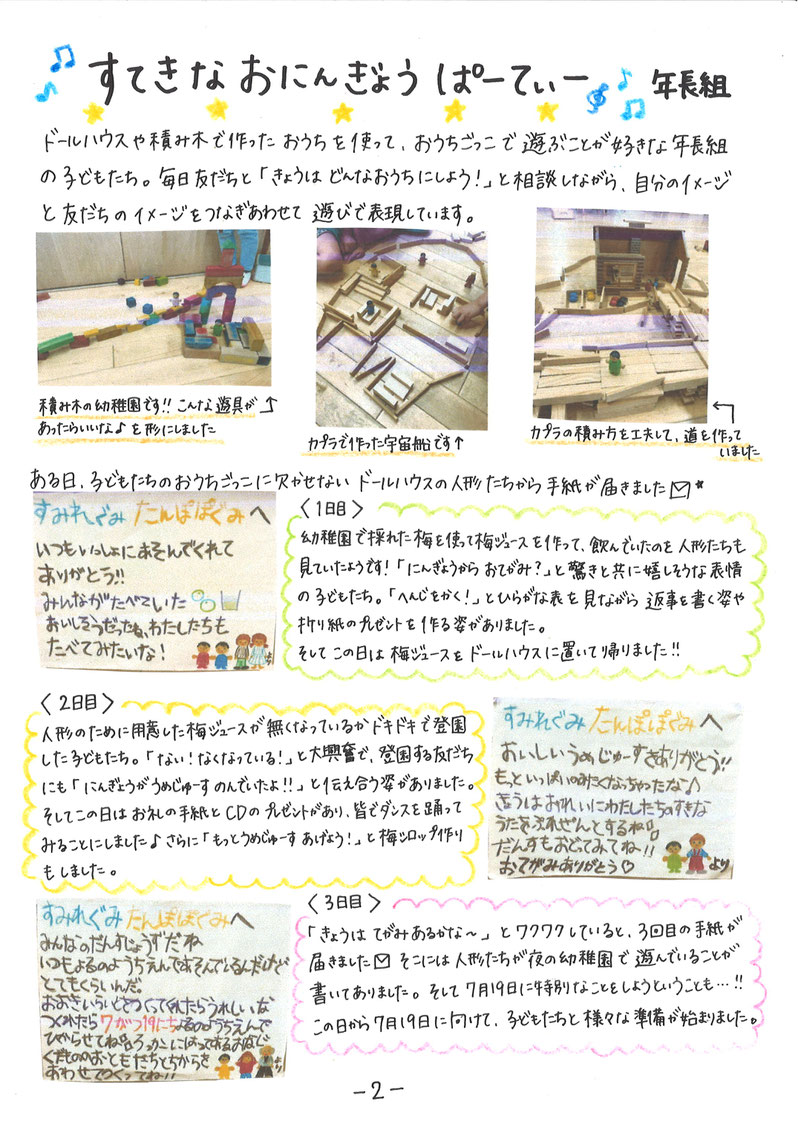 すてきな おにんぎょう ぱーてぃー 年長組
ドールハウスや積み木で作った おうちを使って、おうちごっこで 遊ぶことが好きな年長組
の子どもたち。毎日友だちと「きょうは どんなおうちにしよう!」と相談しながら、自分のイメージ
と友だちのイメージをつなぎあわせて 遊びで表現しています。
積み木の幼稚園です!! こんな遊具が
あったらいいな♪を形にしました
カプラで作った宇宙船です↑
カプラの積み方を工夫して、道を作って
いました
ある日、子どもたちのおうちごっこに欠かせない ドールハウスの人形たちから手紙が届きました
すみれぐみ たんぽぽぐみへ
いつもいっしょにあそんでくれて
ありがとう!!
みんながたべていた
おいしそうだったね。わたしたちも
たべてみたいな!
より
〈1日目〉
幼稚園で採れた梅を使って梅ジュースを作って、飲んでいたのを人形たちも
見ていたようです!「にんぎょうから おてがみ?」と驚きと共に嬉しそうな表情
の子どもたち。「へんじをかく!」とひらがな表を見ながら 返事を書く姿や
折り紙のプレゼントを作る姿がありました。
そして この日は 梅ジュースを ドールハウスに置いて帰りました!!
〈2日目〉
人形のために用意した梅ジュースが無くなっているか ドキドキで登園
した子どもたち。「ない!なくなっている!」と大興奮で、登園する友だち
にも「にんぎょうがうめじゅーす のんでいたよ!!」と伝え合う姿がありました。
そしてこの日はお礼の手紙とCDのプレゼントがあり、皆でダンスを踊って
みることにしました♪さらに「もっとうめじゅーす あげよう!」と梅シロップ作り
もしました。
すみれぐみ たんぽぽぐみへ
おいしいうめじゅーすをありがとう!!
もっといっぱいのみたくなっちゃったな♪
きょうはおれいにわたしたちのすきな
うたをぷれぜんとするね
だんすもおどってみてね!!
おてがみありがとう♡
より
すみれぐみ たんぽぽぐみへ
みんなのだんすじょうずだね
いつもよるのようちえんであそんでいるんだけど
とてもくらいんだ。
おおきい
つくってくれたらうれしいな
つくれたら7がつ19にちよるのようちえんで
ひからせてね
おともだちとちからを
あわせてつくってね!!
より
〈3日目〉
「きょうは てがみあるかな〜」と ワクワクしていると、3回目の手紙が
届きました そこには人形たちが夜の幼稚園で 遊んでいることが
書いてありました。そして 7月19日に特別なことをしようということも…!!
この日から7月19日に向けて、子どもたちと様々な準備が始まりました。
-2-